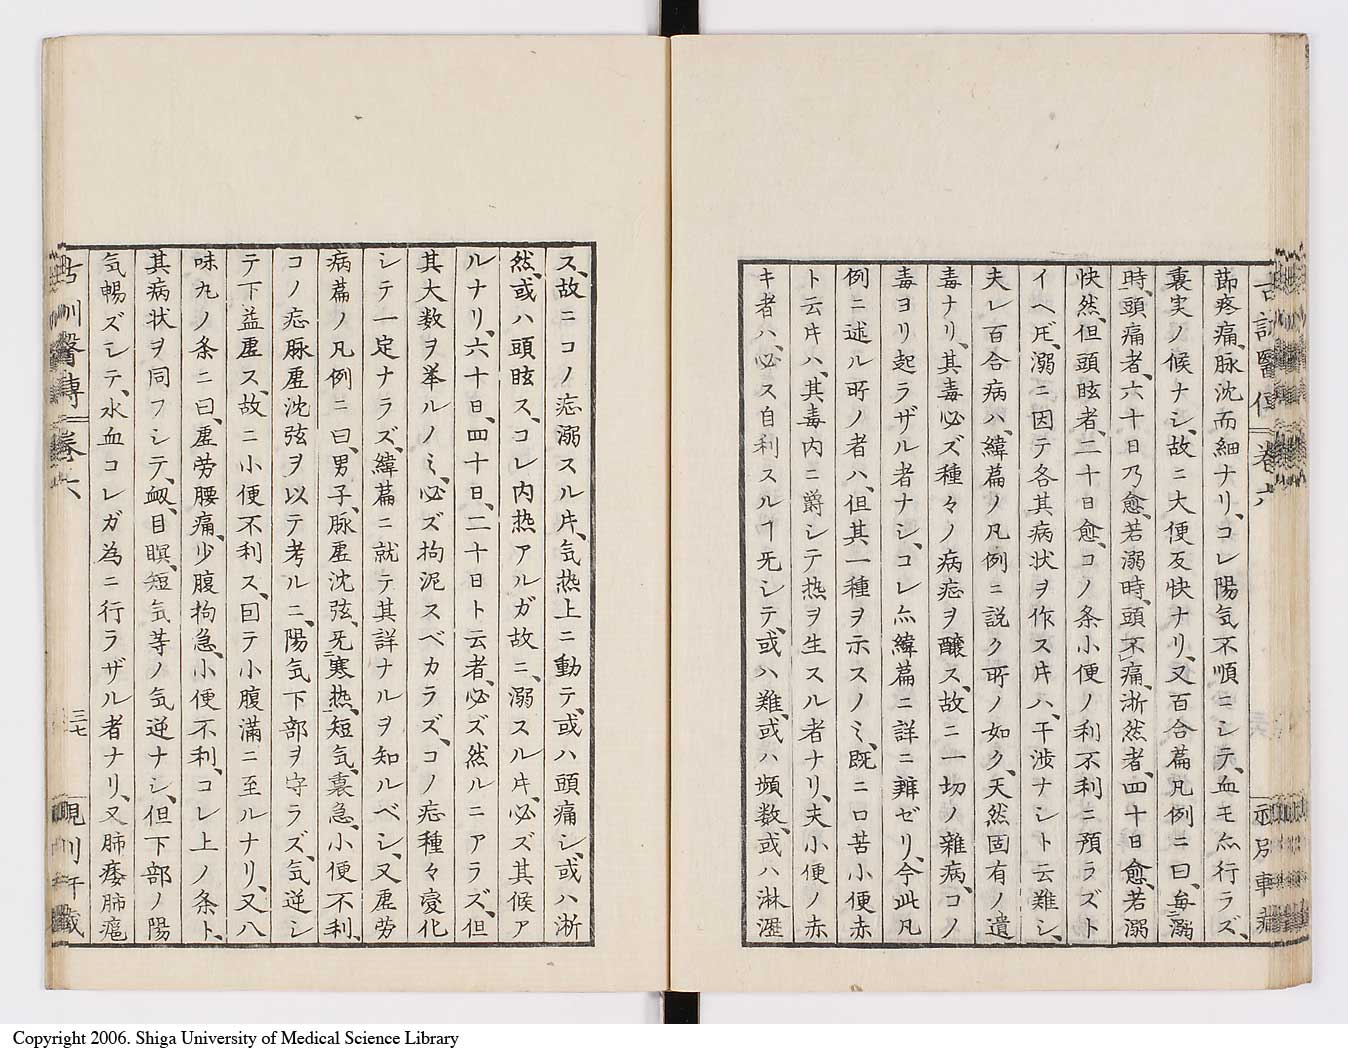 節疼痛、脉沈而細ナリ、コレ陽気不順ニシテ、血モ亦行ラズ、
裏実ノ候ナシ、故ニ大便反快ナリ、又百合篇凡例ニ曰、毎溺
時、頭痛者、六十日乃愈、若溺時、頭不痛、淅然者、四十日愈、若溺
快然、但頭眩者、二十日愈、コノ条小便ノ利不利ニ預ラズト
イヘ𪜈、溺ニ因テ各其病状ヲ作ス𪜈ハ、干渉ナシト云難シ、
夫レ百合病ハ、緯篇ノ凡例ニ説ク所ノ如ク、天然固有ノ遺
毒ナリ、其毒必ズ種々ノ病㾮ヲ醸ス、故ニ一切ノ雑病、コノ
毒ヨリ起ラザル者ナシ、コレ亦緯篇ニ詳ニ辨ゼリ、今此凡
例ニ述ル所ノ者ハ、但其一種ヲ示スノミ、既ニ口苦小便赤
ト云片ハ、其毒内ニ爵シテ熱ヲ生スル者ナリ、夫小便ノ赤
キ者ハ、必ス自利スルヿ旡シテ、或ハ難、或ハ頻数、或ハ淋瀝
ス、故ニコノ㾮溺スル片、気熱上ニ動テ、或ハ頭痛シ、或ハ淅
然、或ハ頭眩ス、コレ内熱アルガ故ニ、溺スル片、必ズ其候ア
ルナリ、六十日、四十日、二十日ト云者、必ズ然ルニアラズ、但
其大数ヲ挙ルノミ、必ズ拘泥スベカラズ、コノ㾮種々変化
シテ一定ナラズ、緯篇ニ就テ其詳ナルヲ知ルベシ、又虚労
病篇ノ凡例ニ曰、男子、脉虚沈弦、旡寒熱、短気、裏急、小便不利、
コノ㾮脉虚沈弦ヲ以テ考ルニ、陽気下部ヲ守ラズ、気逆シ
テ下益虚ス、故ニ小便不利ス、回テ小腹滿ニ至ルナリ、又八
味九ノ条ニ曰、虚労腰痛、少腹拘急、小便不利、コレ上ノ条ト、
其病状ヲ同フシテ、衂、目瞑、短気等ノ気逆ナシ、但下部ノ陽
気暢ズシテ、水血コレガ為ニ行ラザル者ナリ、又肺痿肺癰
古訓醫傳 巻六
三七